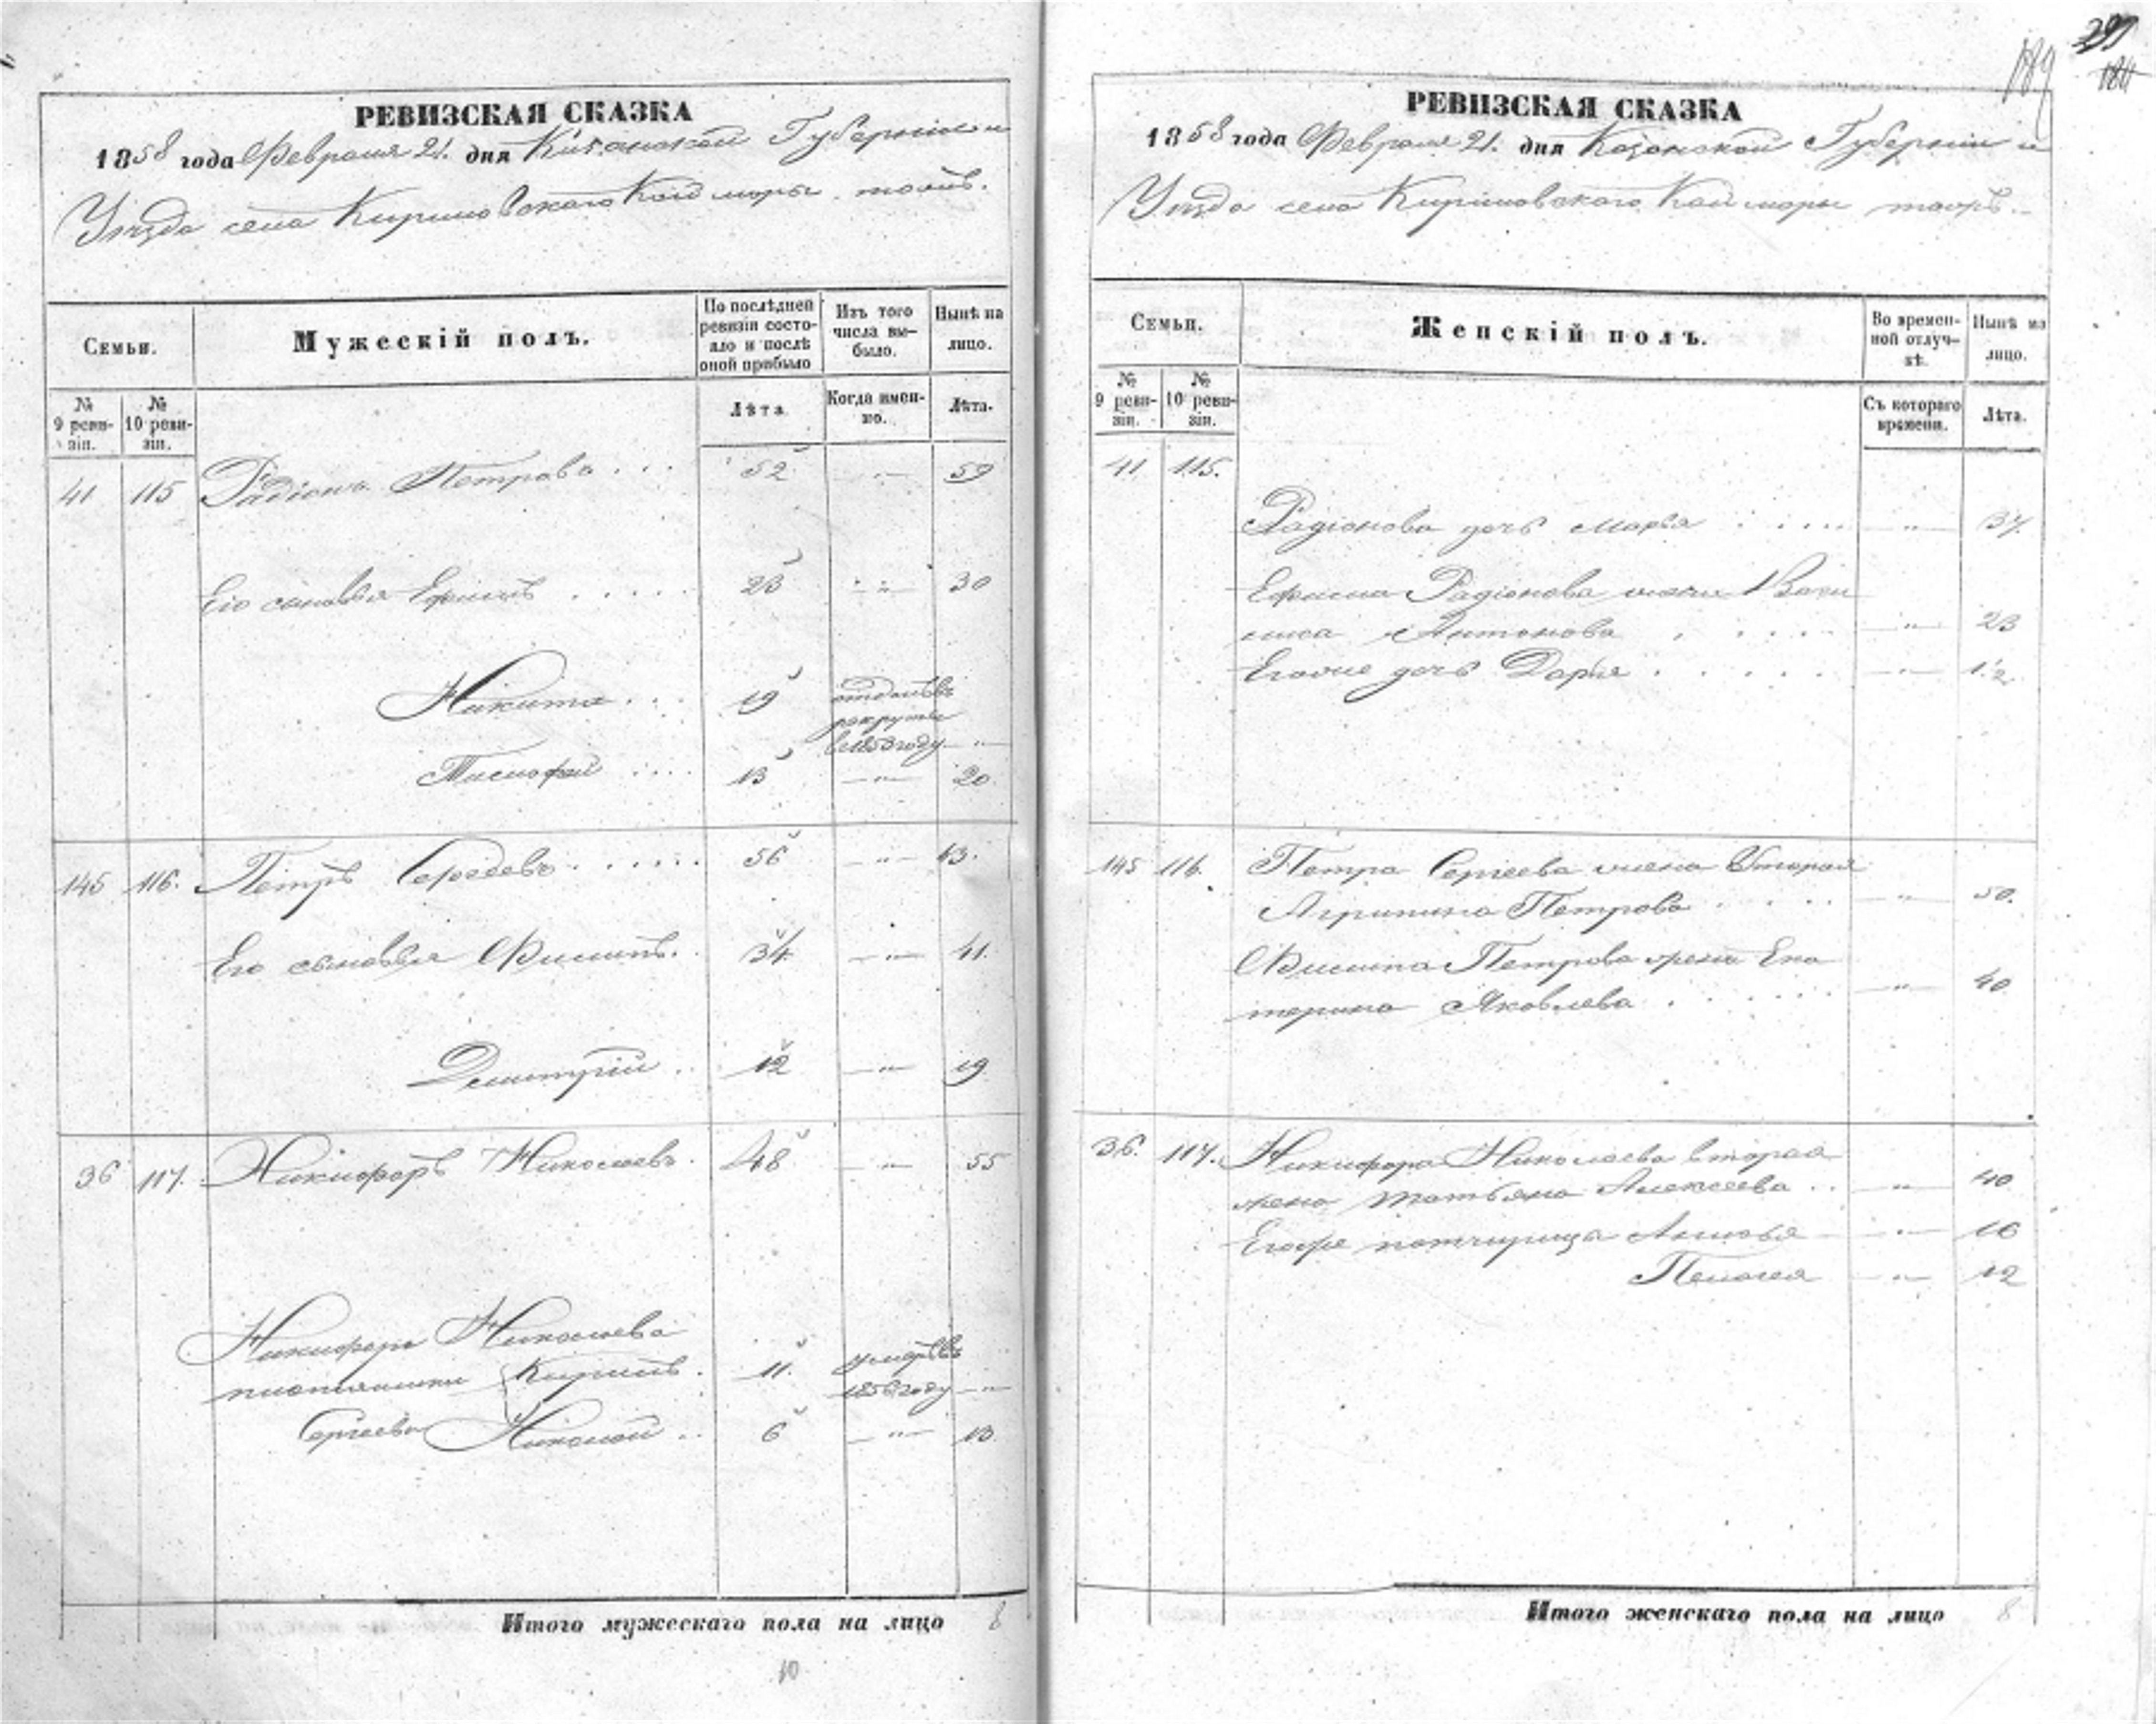 РЕВИЗСКАЯ СКАЗКА
1858 года Февраля 21. дня Казанской Губернiи и
Уѣзда села Кирилловскаго Каймары тожъ.
Семьи.
Мужескiй полъ.
По послѣдней ревизiи состояло и послѣ оной прибыло
Изъ того числа выбыло.
Нынѣ на лицо.
№ 9 ревизiи.
№ 10 ревизiи.
Лѣта.
Когда именно.
Лѣта.
41 115 Радiонъ Петровъ . . . 52 —"— 59
Его сыновья Ефимъ . . . . . 23 —"— 30
Никита . . . 19 отданъ въ
рекруты
в 1853 году —"—
Тимофей . . . . 13 —"— 20.
145 116. Петръ Сергеевъ . . . . . 56 —"— 63.
Его сыновья Филипъ. . 34 —"— 41.
Дмитрiй . . 12 —"— 19.
36 117. Никифоръ Николаевъ. 48 —"— 55
Никифора Николаева
племянники Кирилъ . 11. умеръ въ
185 году —"—
Сергеевы Николай . . 6 —"— 13.
Итого мужескаго пола на лицо 8
10
189
РЕВИЗСКАЯ СКАЗКА
1858 года Февраля 21. дня Казанской Губернiи и
Уѣзда села Кирилловскаго Каймары тожъ.
Семьи.
Женскiй полъ.
Во временной отлучкѣ.
Нынѣ на лицо.
№ 9 ревизiи.
№ 10 ревизiи.
Съ котораго времени.
Лѣта.
41 115.
Радiонова дочь Марья . . . . . —"— 37.
Ефима Радiонова жена Васи
лиса Антонова . . . . . —"— 23
Егоже дочь Дарья . . . . . —"— 1/2.
145 116. Петра Сергеева жена вторая
Агрипина Петрова . . . . . —"— 50.
Филипа Петрова жена Ека
терина Яковлева . . . . . —"— 40
36. 117. Никифора Николаева вторая
жена Татьяна Алексеева . . —"— 40
Егоже патчирица —"— 16
Пелагея —"— 12
Итого женскаго пола на лицо 8